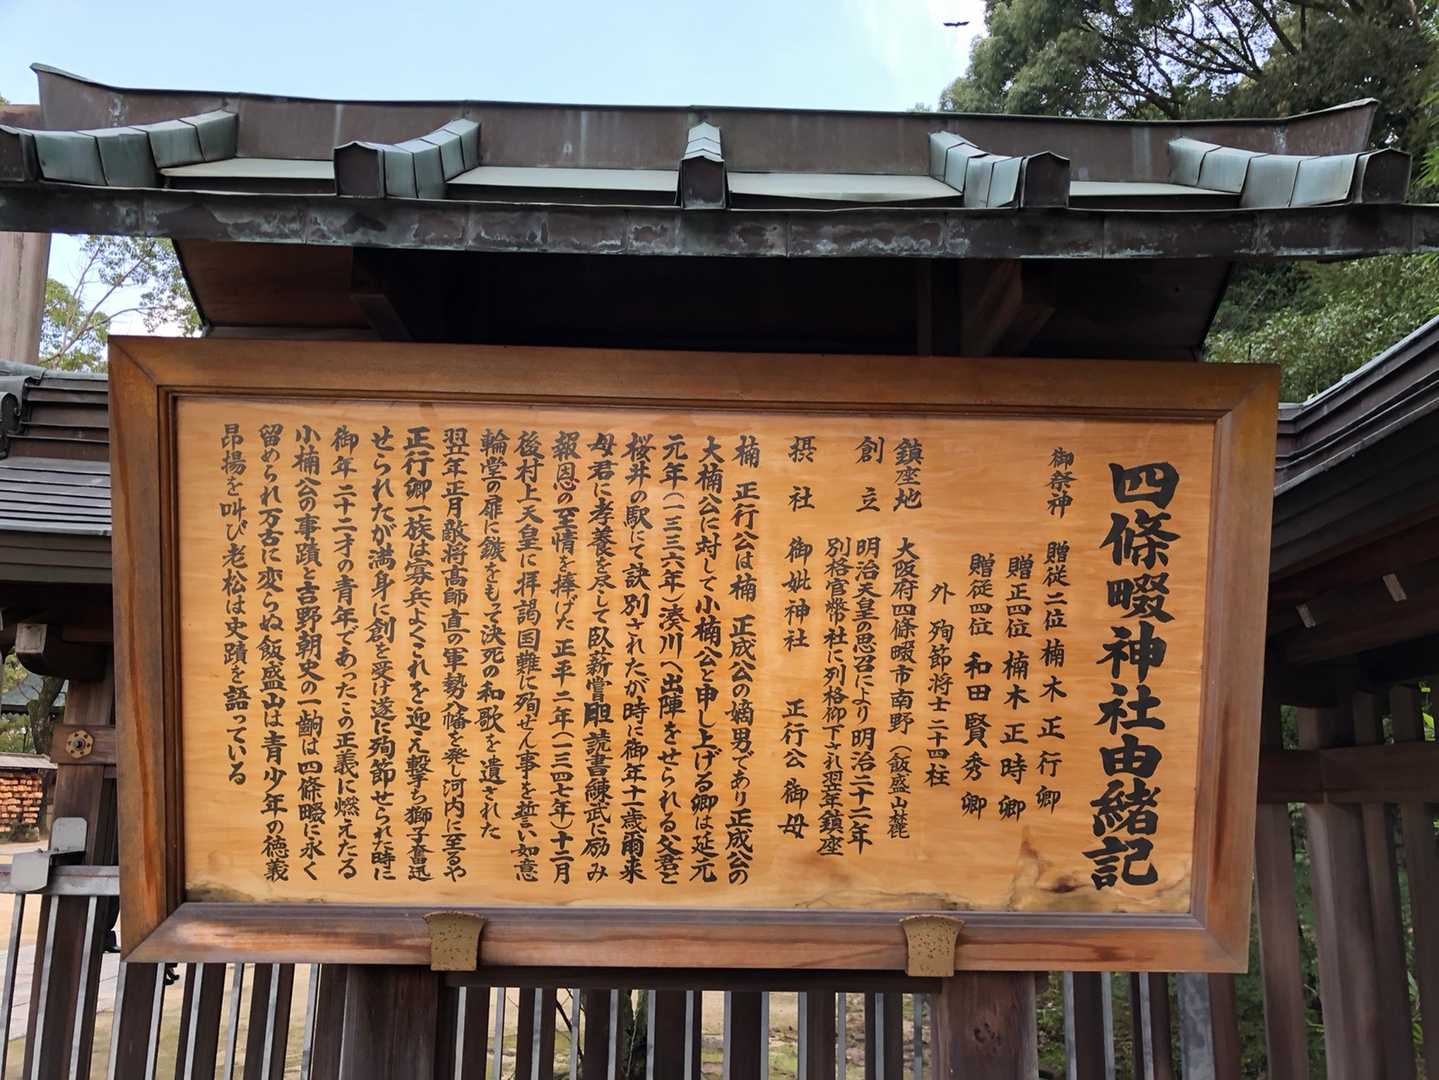 四條畷神社由緒記
御祭神 贈従二位 楠木正行卿
贈正四位 楠木正時卿
贈従四位 和田賢秀卿
外 殉節将士二十四柱
鎮座地 大阪府四條畷市南野(飯盛山麓
創立 明治天皇の思召により明治二十二年
別格官幣社に列格仰下され翌年鎮座
摂社 御妣神社 正行公御母
楠 正行公は楠 正成公の嫡男であり正成公の
大楠公に対して小楠公と申し上げる卿は延元
元年(一三三六年)湊川へ出陣をせられる父君と
桜井の駅にて訣別されたが時に御年十一歳爾来
母君に孝養を尽して臥薪嘗胆読書練武に励み
報恩の至情を捧げた 正平二年(一三四七年)十二月
後村上天皇に拝謁国難に殉せん事を誓い如意
輪堂の扉に鏃をもって決死の和歌を遺された
翌年正月敵将高師直の軍勢八幡を発し河内に至るや
正行卿一族は寡兵よくこれを迎え撃ち獅子奮迅
せられたが満身に創を受け遂に殉節せられた時に
御年二十二才の青年であったこの正義に燃えたる
小楠公の事蹟と吉野朝史の一齣は四條畷に永く
留められ万古に変らぬ飯盛山は青少年の徳義
昂揚を叫び老松は史蹟を語っている